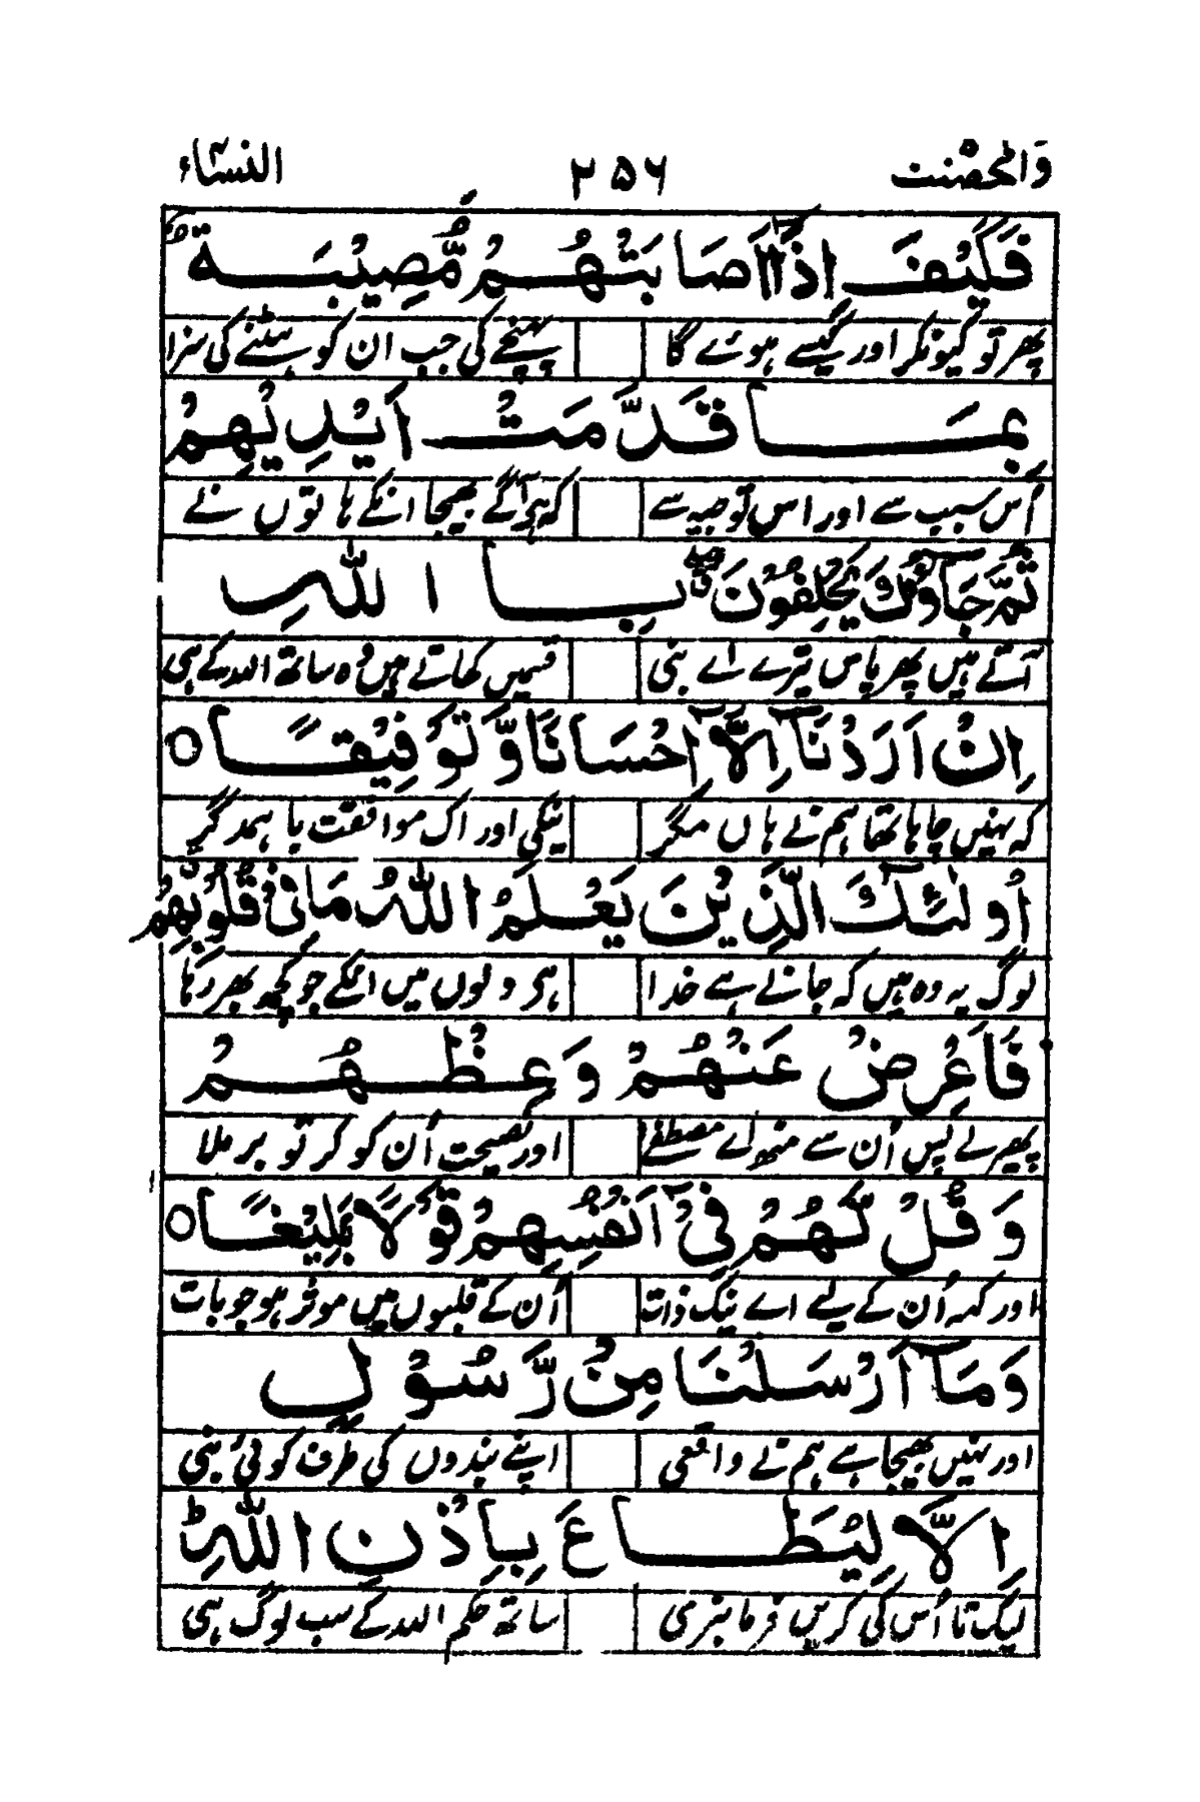 وَالمحصنت ۲۵۶ النسآء
فَكَيْفَ اِذَآ اَصَابَتْهُمْ مُّصِيْبَةٌ
پھر تو کیونکر اور کیسے ہوئے گا پہنچے گی جب ان کو ہٹنے کی سزا
بِمَا قَدَّمَتْ اَيْدِيْهِمْ
اُس سبب سے اور اس توجیہ سے کہ جو آگے بھیجا انکے ہاتوں نے
ثُمَّ جَآءُوْكَ يَحْلِفُوْنَ بِاللّٰهِ
آتے ہیں پھر پاس تیرے اے نبی قسمیں کھاتے ہیں وہ ساتھ اللہ کے ہی
اِنْ اَرَدْنَآ اِلَّآ اِحْسَانًا وَّتَوْفِيْقًا ○
کہ نہیں چاہا تھا ہم نے ہاں مگر نیکی اور اک موافقت با ہمدگر
اُولٰٓئِكَ الَّذِيْنَ يَعْلَمُ اللّٰهُ مَا فِيْ قُلُوْبِهِمْ
لوگ یہ وہ ہیں کہ جانے ہے خدا ہی دلوں میں انکے جو کچھ بھر رہا
فَاَعْرِضْ عَنْهُمْ وَعِظْهُمْ
پھیر لے پس اُن سے منھ اے مصطفےٰ اور نصیحت اُن کو کر تو برملا
وَقُلْ لَّهُمْ فِيْٓ اَنْفُسِهِمْ قَوْلًۢا بَلِيْغًا ○
اور کہہ اُن کے لیے اے نیک ذات اُن کے قلبوں میں موثر ہو جو بات
وَمَآ اَرْسَلْنَا مِنْ رَّسُوْلٍ
اور نہیں بھیجا ہے ہم نے واقعی اپنے بندوں کی طرف کوئی نبی
اِلَّا لِيُطَاعَ بِاِذْنِ اللّٰهِ ط
لیک تا اُس کی کریں فرمانبری ساتھ حکم اللہ کے سب لوگ ہی